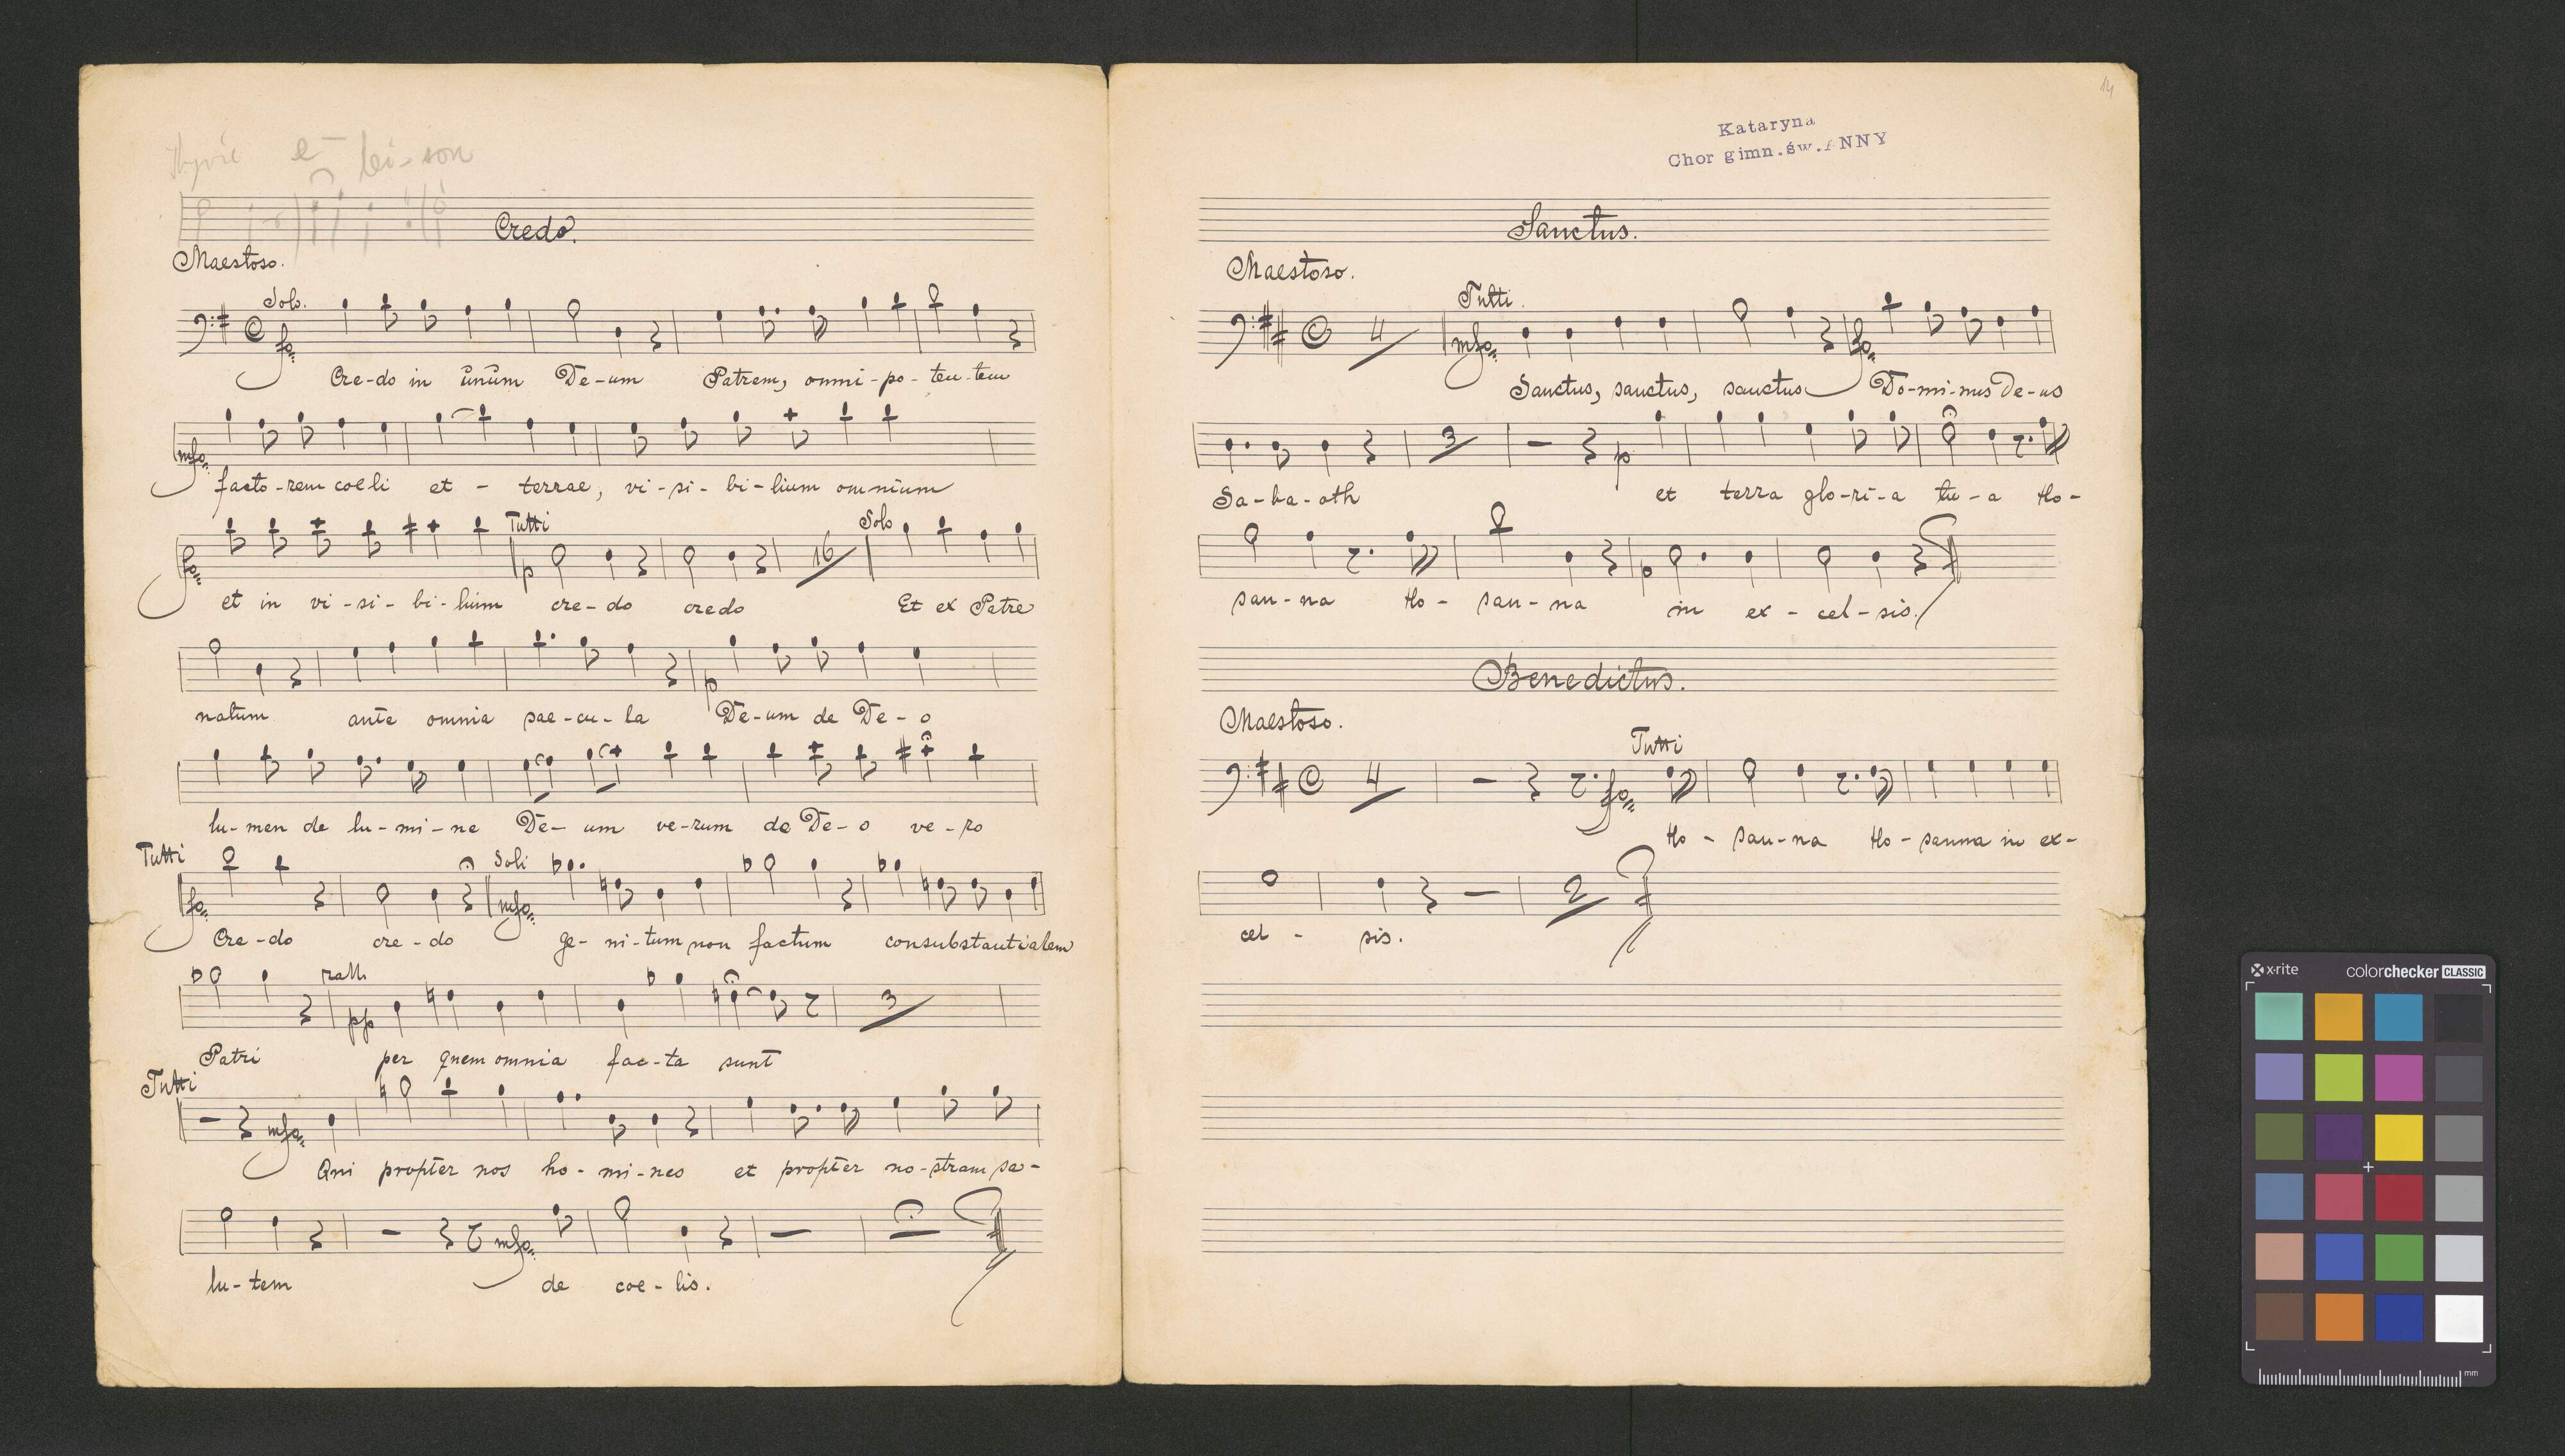 Kyrie e - lei - son
Credo.
Maestoso.
Solo.
fo.
Cre-do in unum De-um Patrem, omni-po-ten-tem
mfo.
facto-rem coeli et - terrae, vi-si-bi-lium omnium
Tutti Solo
fo. p 16
et in vi-si-bi-lium cre-do credo Et ex Patre
p
natum ante omnia sae-cu-la De-um de De-o
lu-men de lu-mi-ne De-um ve-rum de De-o ve-ro
Tutti Soli
fo. mfo.
Cre-do cre-do ge-ni-tum non factum consubstantialem
rall.
pp 3
Patri per quem omnia fac-ta sunt
Tutti
mfo.
Qui propter nos ho-mi-nes et propter no-stram sa-
mfo.
lu-tem de coe-lis.
14
Kataryna
Chor gimn.św.ANNY
Sanctus.
Maestoso.
Tutti.
4 mfo. fo.
Sanctus, sanctus, sanctus Do-mi-nus De-us
3 p
Sa-ba-oth et terra glo-ri-a tu-a Ho-
p
san-na Ho-san-na in ex-cel-sis.
Benedictus.
Maestoso.
Tutti
4 fo.
Ho-san-na Ho-sanna in ex-
2
cel - sis.
x-rite colorchecker CLASSIC
mm